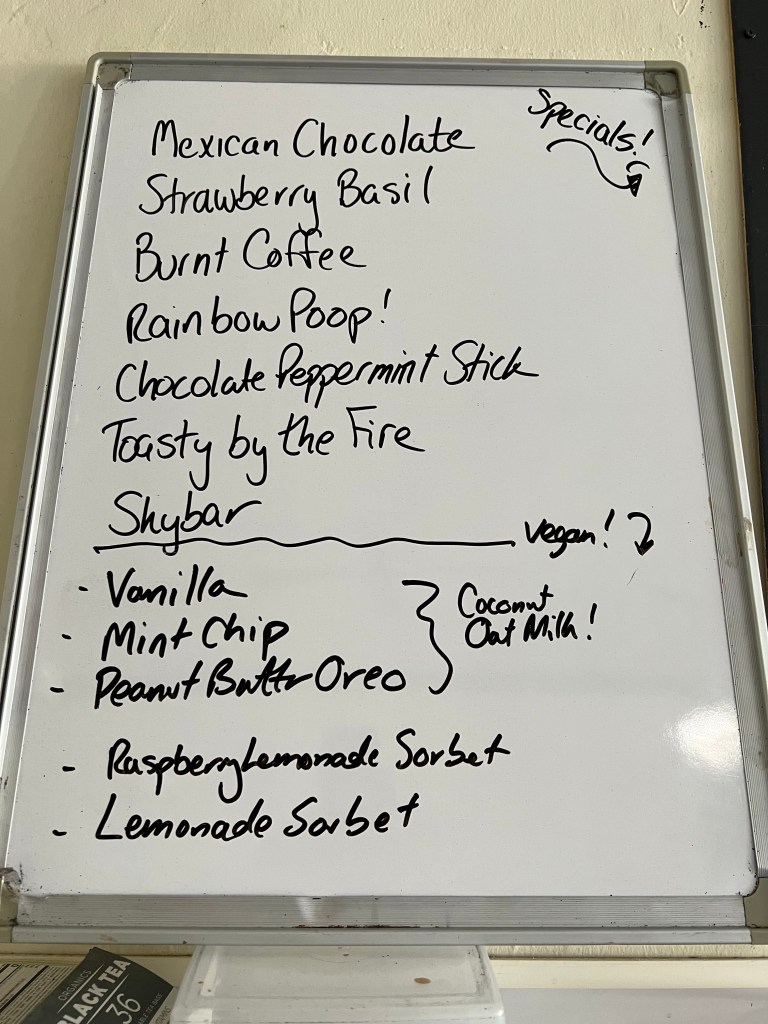 Specials!
Mexican Chocolate
Strawberry Basil
Burnt Coffee
Rainbow Poop!
Chocolate Peppermint Stick
Toasty by the Fire
Skybar
Vegan!
- Vanilla
- Mint Chip
- Peanut Buttr Oreo
Coconut
Oat Milk!
- Raspberry Lemonade Sorbet
- Lemonade Sorbet
ORGANICS
BLACK TEA
36